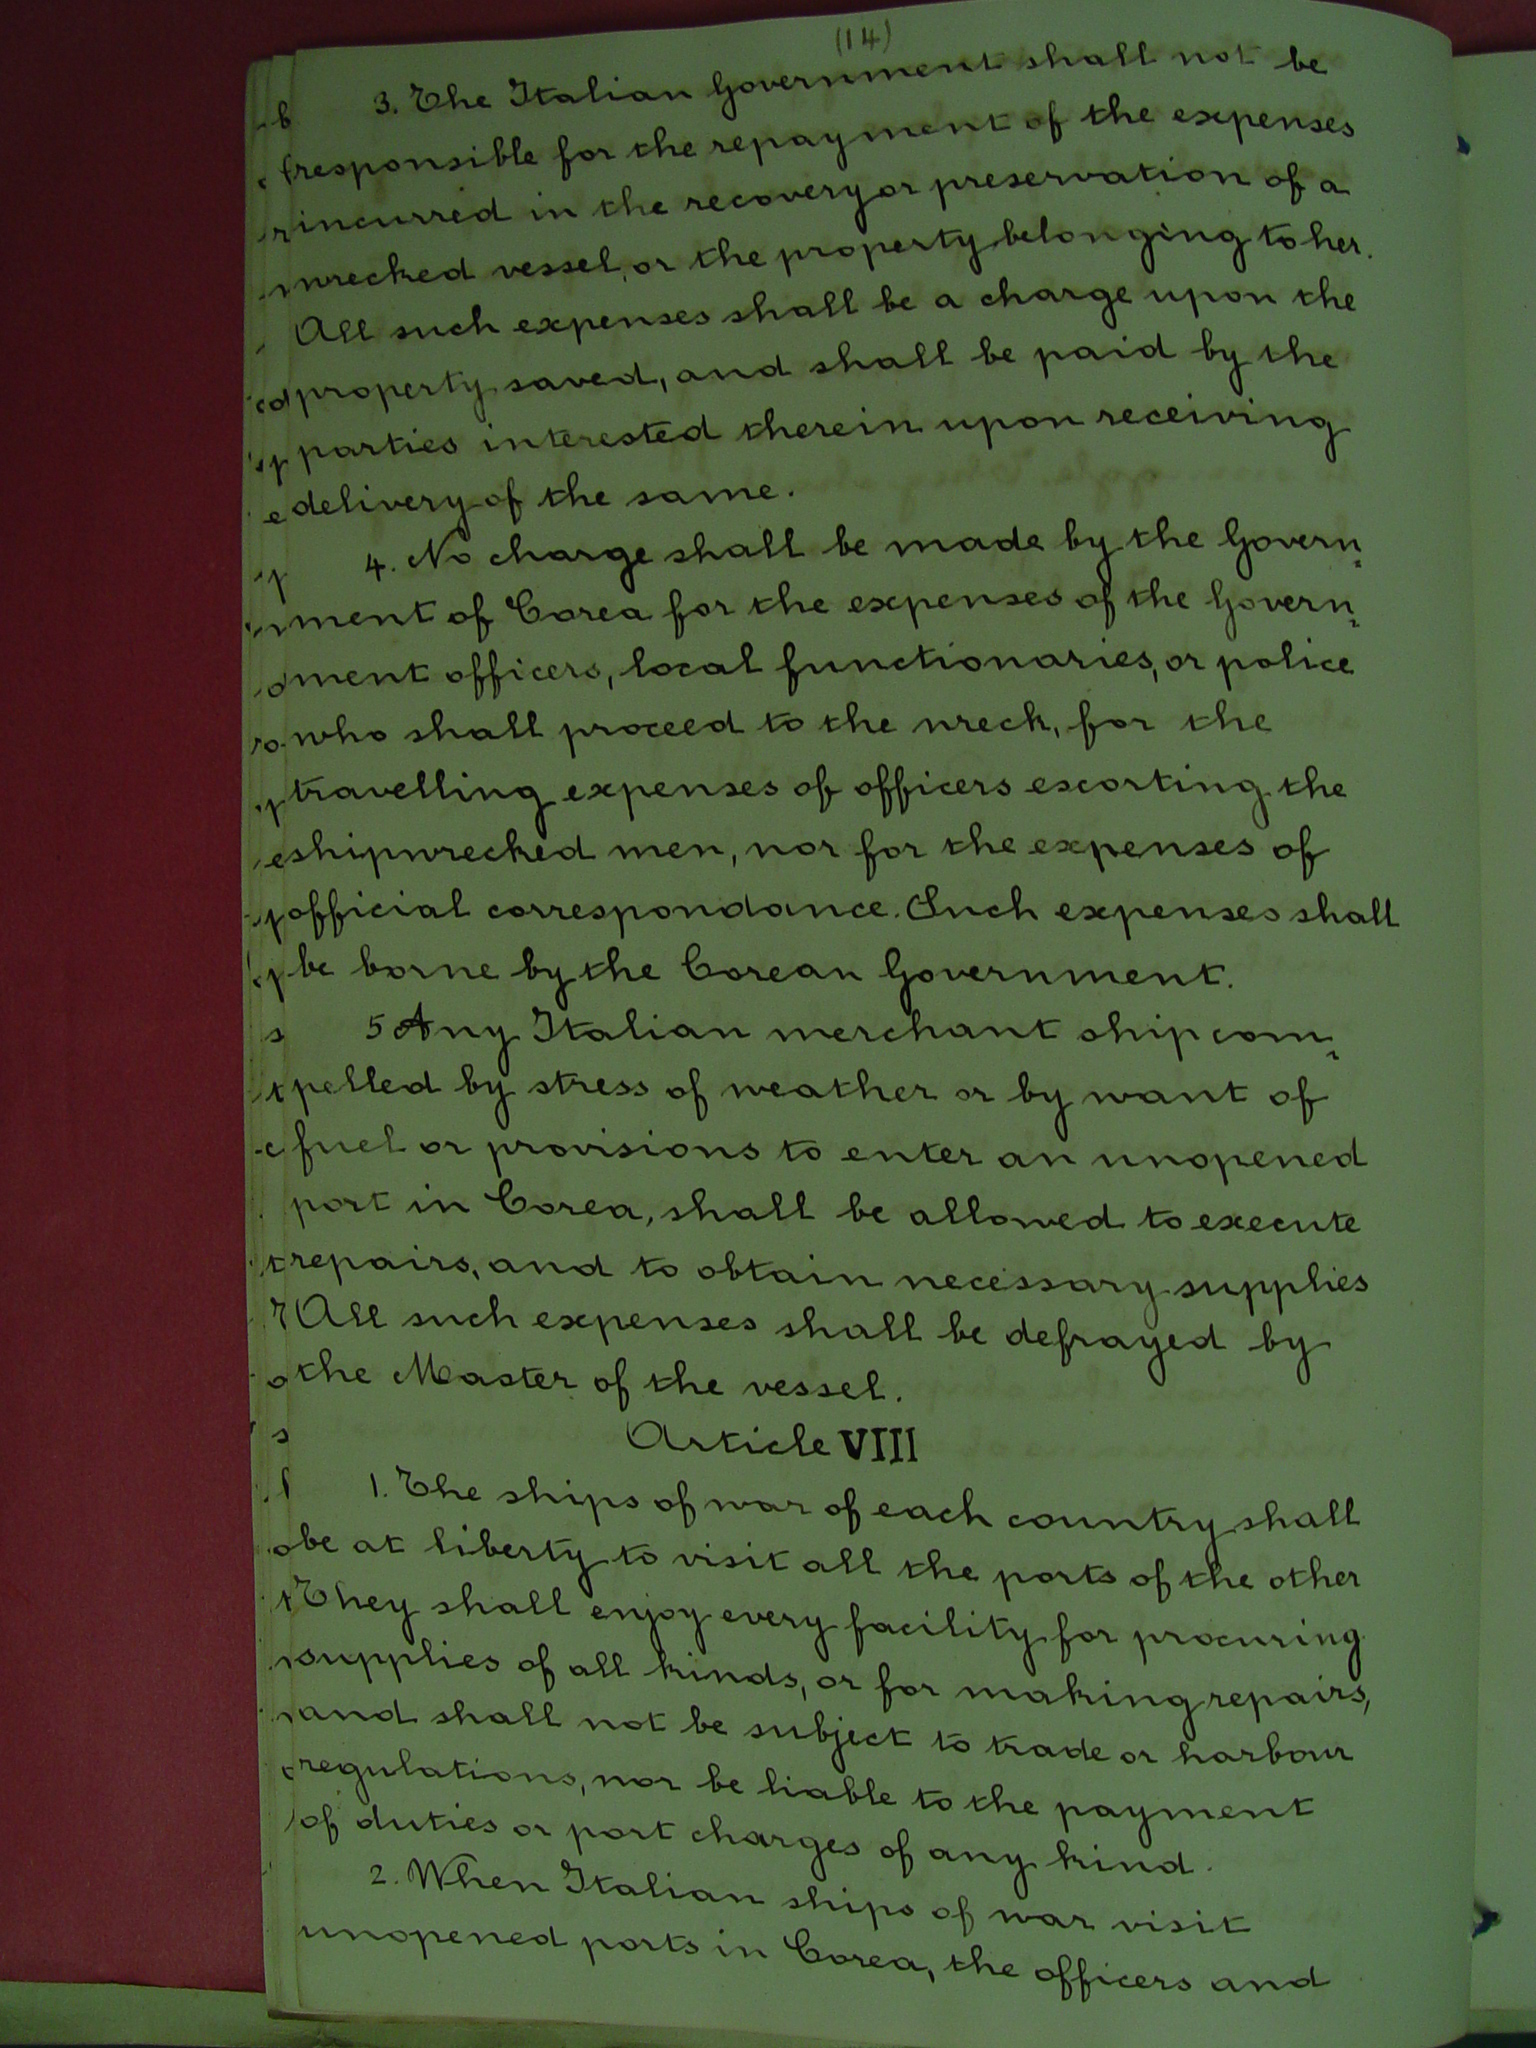 (14)
3. The Italian Government shall not be
responsible for the repayment of the expenses
incurred in the recovery or preservation of a
wrecked vessel, or the property belonging to her.
All such expenses shall be a charge upon the
property saved, and shall be paid by the
parties interested therein upon receiving
delivery of the same.
4. No charge shall be made by the Govern-
ment of Corea for the expenses of the Govern-
ment officers, local functionaries, or police
who shall proceed to the wreck, for the
travelling expenses of officers escorting the
shipwrecked men, nor for the expenses of
official correspondance. Such expenses shall
be borne by the Corean Government.
5 Any Italian merchant ship com-
pelled by stress of weather or by want of
fuel or provisions to enter an unopened
port in Corea, shall be allowed to execute
repairs, and to obtain necessary supplies
All such expenses shall be defrayed by
the Master of the vessel.
Article VIII
1. The ships of war of each country shall
be at liberty to visit all the ports of the other
They shall enjoy every facility for procuring
supplies of all kinds, or for making repairs,
and shall not be subject to trade or harbour
regulations, nor be liable to the payment
of duties or port charges of any kind.
2. When Italian ships of war visit
unopened ports in Corea, the officers and